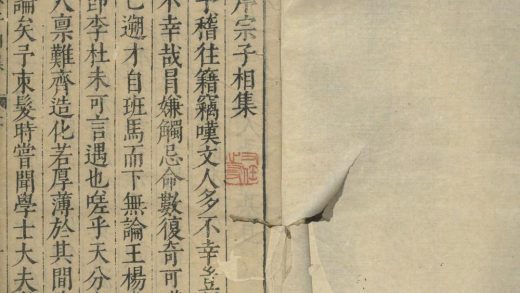 序宗子相集
予稽往籍竊嘆文人多不幸
不幸哉冒嫌觸忌命數復奇可
已遡才自班馬而下無論王楊
即李杜未可言遇也嗟乎天分
人禀難齊造化若厚薄於其間
論矣予束髮時嘗聞學士大夫